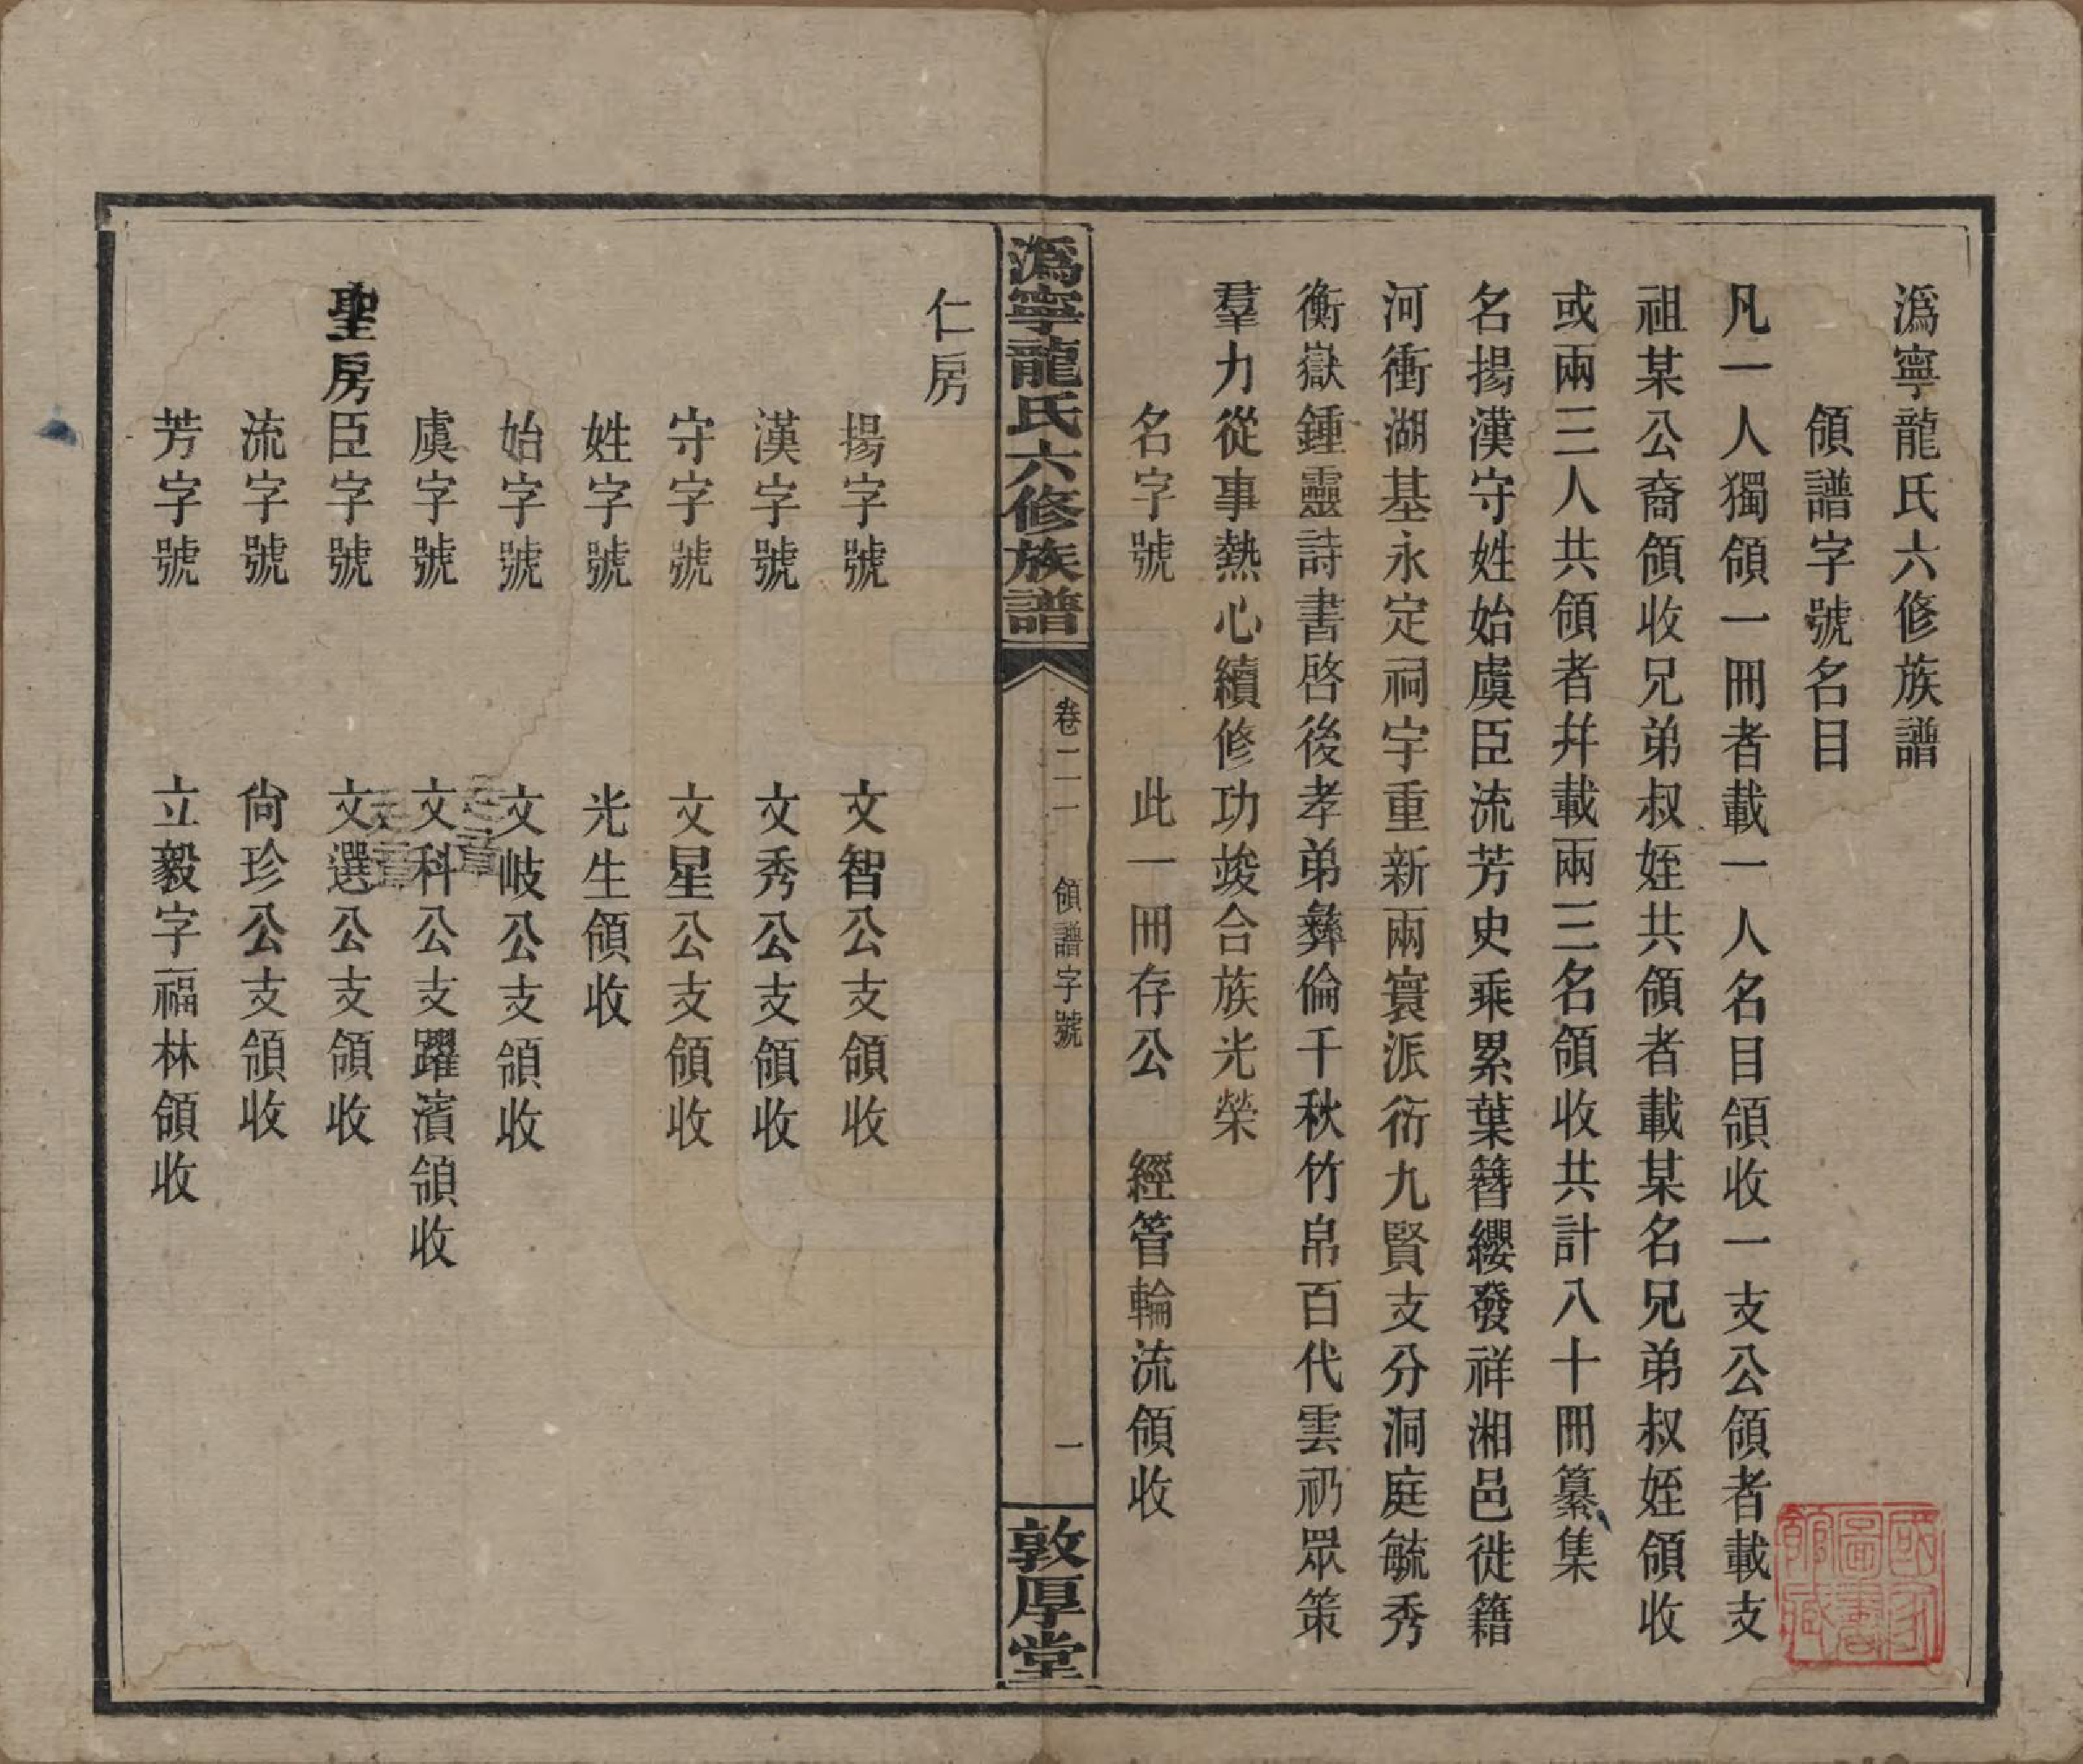 溈寧龍氏六修族譜
領譜字號名目
凡一人獨領一冊者載一人名目領收一支公領者載支
祖某公裔領收兄弟叔姪共領者載某名兄弟叔姪領收
或兩三人共領者幷載兩三名領收共計八十冊纂集
名揚漢守姓始虞臣流芳史乘累葉簪纓發祥湘邑徙籍
河衝湖基永定祠宇重新兩寰派衍九賢支分洞庭毓秀
衡嶽鍾靈詩書啓後孝弟彝倫千秋竹帛百代雲礽眾策
羣力從事熱心續修功竣合族光榮
名字號 此一冊存公 經管輪流領收
溈寧龍氏六修族譜 卷二一 領譜字號 一 敦厚堂
仁房
揚字號 文智公支領收
漢字號 文秀公支領收
守字號 文星公支領收
姓字號 光生領收
始字號 文岐公支領收
虞字號 文科公支躍濱領收
聖房 臣字號 文選公支領收
流字號 尙珍公支領收
芳字號 立毅字福林領收
國家圖書館藏